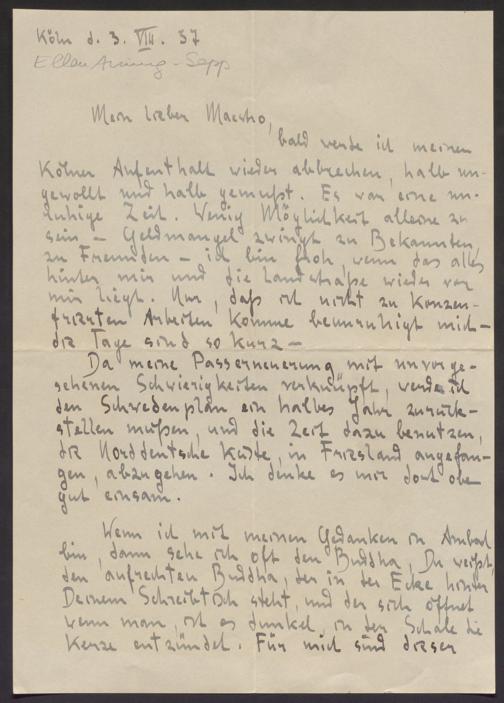 Köln d. 3. VIII. 37
Ellen Arning-Sepp
Mein lieber Maestro,
bald werde ich meinen
Kölner Aufenthalt wieder abbrechen, halb un-
gewollt und halb gemußt. Es war eine un-
ruhige Zeit. Wenig Möglichkeit alleine zu
sein – Geldmangel zwingt zu Bekannten,
zu Freunden – ich bin froh, wenn das alles
hinter mir und die Landstraße wieder vor
mir liegt. Nur, daß ich nicht zu konzen-
trierten Arbeiten komme beunruhigt mich –
die Tage sind so kurz –
Da meine Passerneuerung mit unvorge-
sehenen Schwierigkeiten verknüpft, werde ich
den Schwedenplan ein halbes Jahr zurück-
stellen müßen, und die Zeit dazu benutzen,
die Norddeutsche Küste, in Friesland angefan-
gen, abzugehen. Ich denke es mir dort oben
gut einsam.
Wenn ich mit meinen Gedanken in
bin, dann sehe ich oft den Buddha, Du weißt,
den aufrechten Buddha, der in der Ecke hinter
Deinem Schreibtisch steht, und der sich öffnet
wenn man, ist es dunkel, in der Schale die
Kerze entzündet. Für mich sind dieser